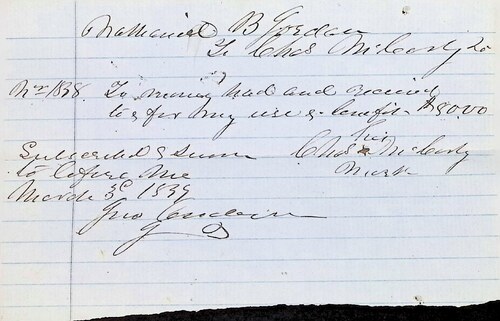 Nathaniel B Gordan
To Chas McCarty Dr
1838. To money had and received
to & for my use & benefit $80.00
his
Chas x McCarty
mark
Subscribed & Sworn
to before me
March 3d 1839
Geo